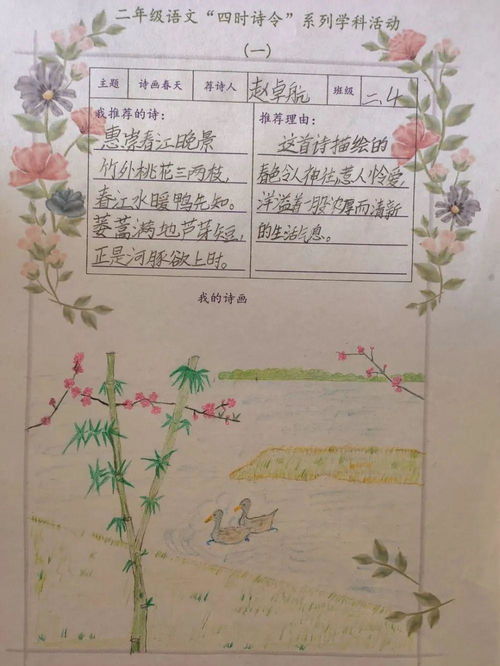 二年级语文“四时诗令”系列学科活动
（一）
主题 诗画春天 荐诗人 赵卓航 班级 二.4
我推荐的诗：
惠崇春江晚景
竹外桃花三两枝，
春江水暖鸭先知。
蒌蒿满地芦芽短，
正是河豚欲上时。
推荐理由：
这首诗描绘的
景色令人神往惹人怜爱，
洋溢着一股浓厚而清新
的生活气息。
我的诗画